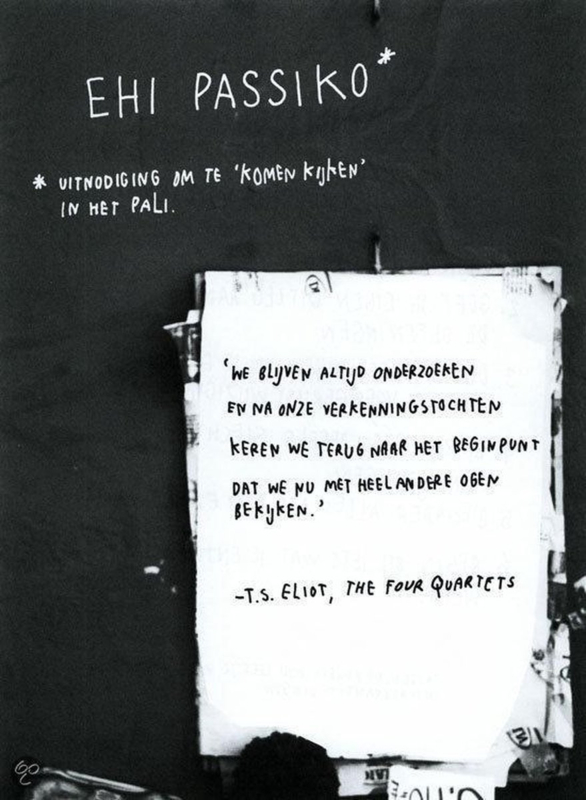 EHI PASSIKO*
* UITNODIGING OM TE 'KOMEN KIJKEN'
IN HET PALI.
'WE BLIJVEN ALTIJD ONDERZOEKEN
EN NA ONZE VERKENNINGSTOCHTEN
KEREN WE TERUG NAAR HET BEGINPUNT
DAT WE NU MET HEEL ANDERE OGEN
BEKIJKEN.'
-T.S. ELIOT, THE FOUR QUARTETS